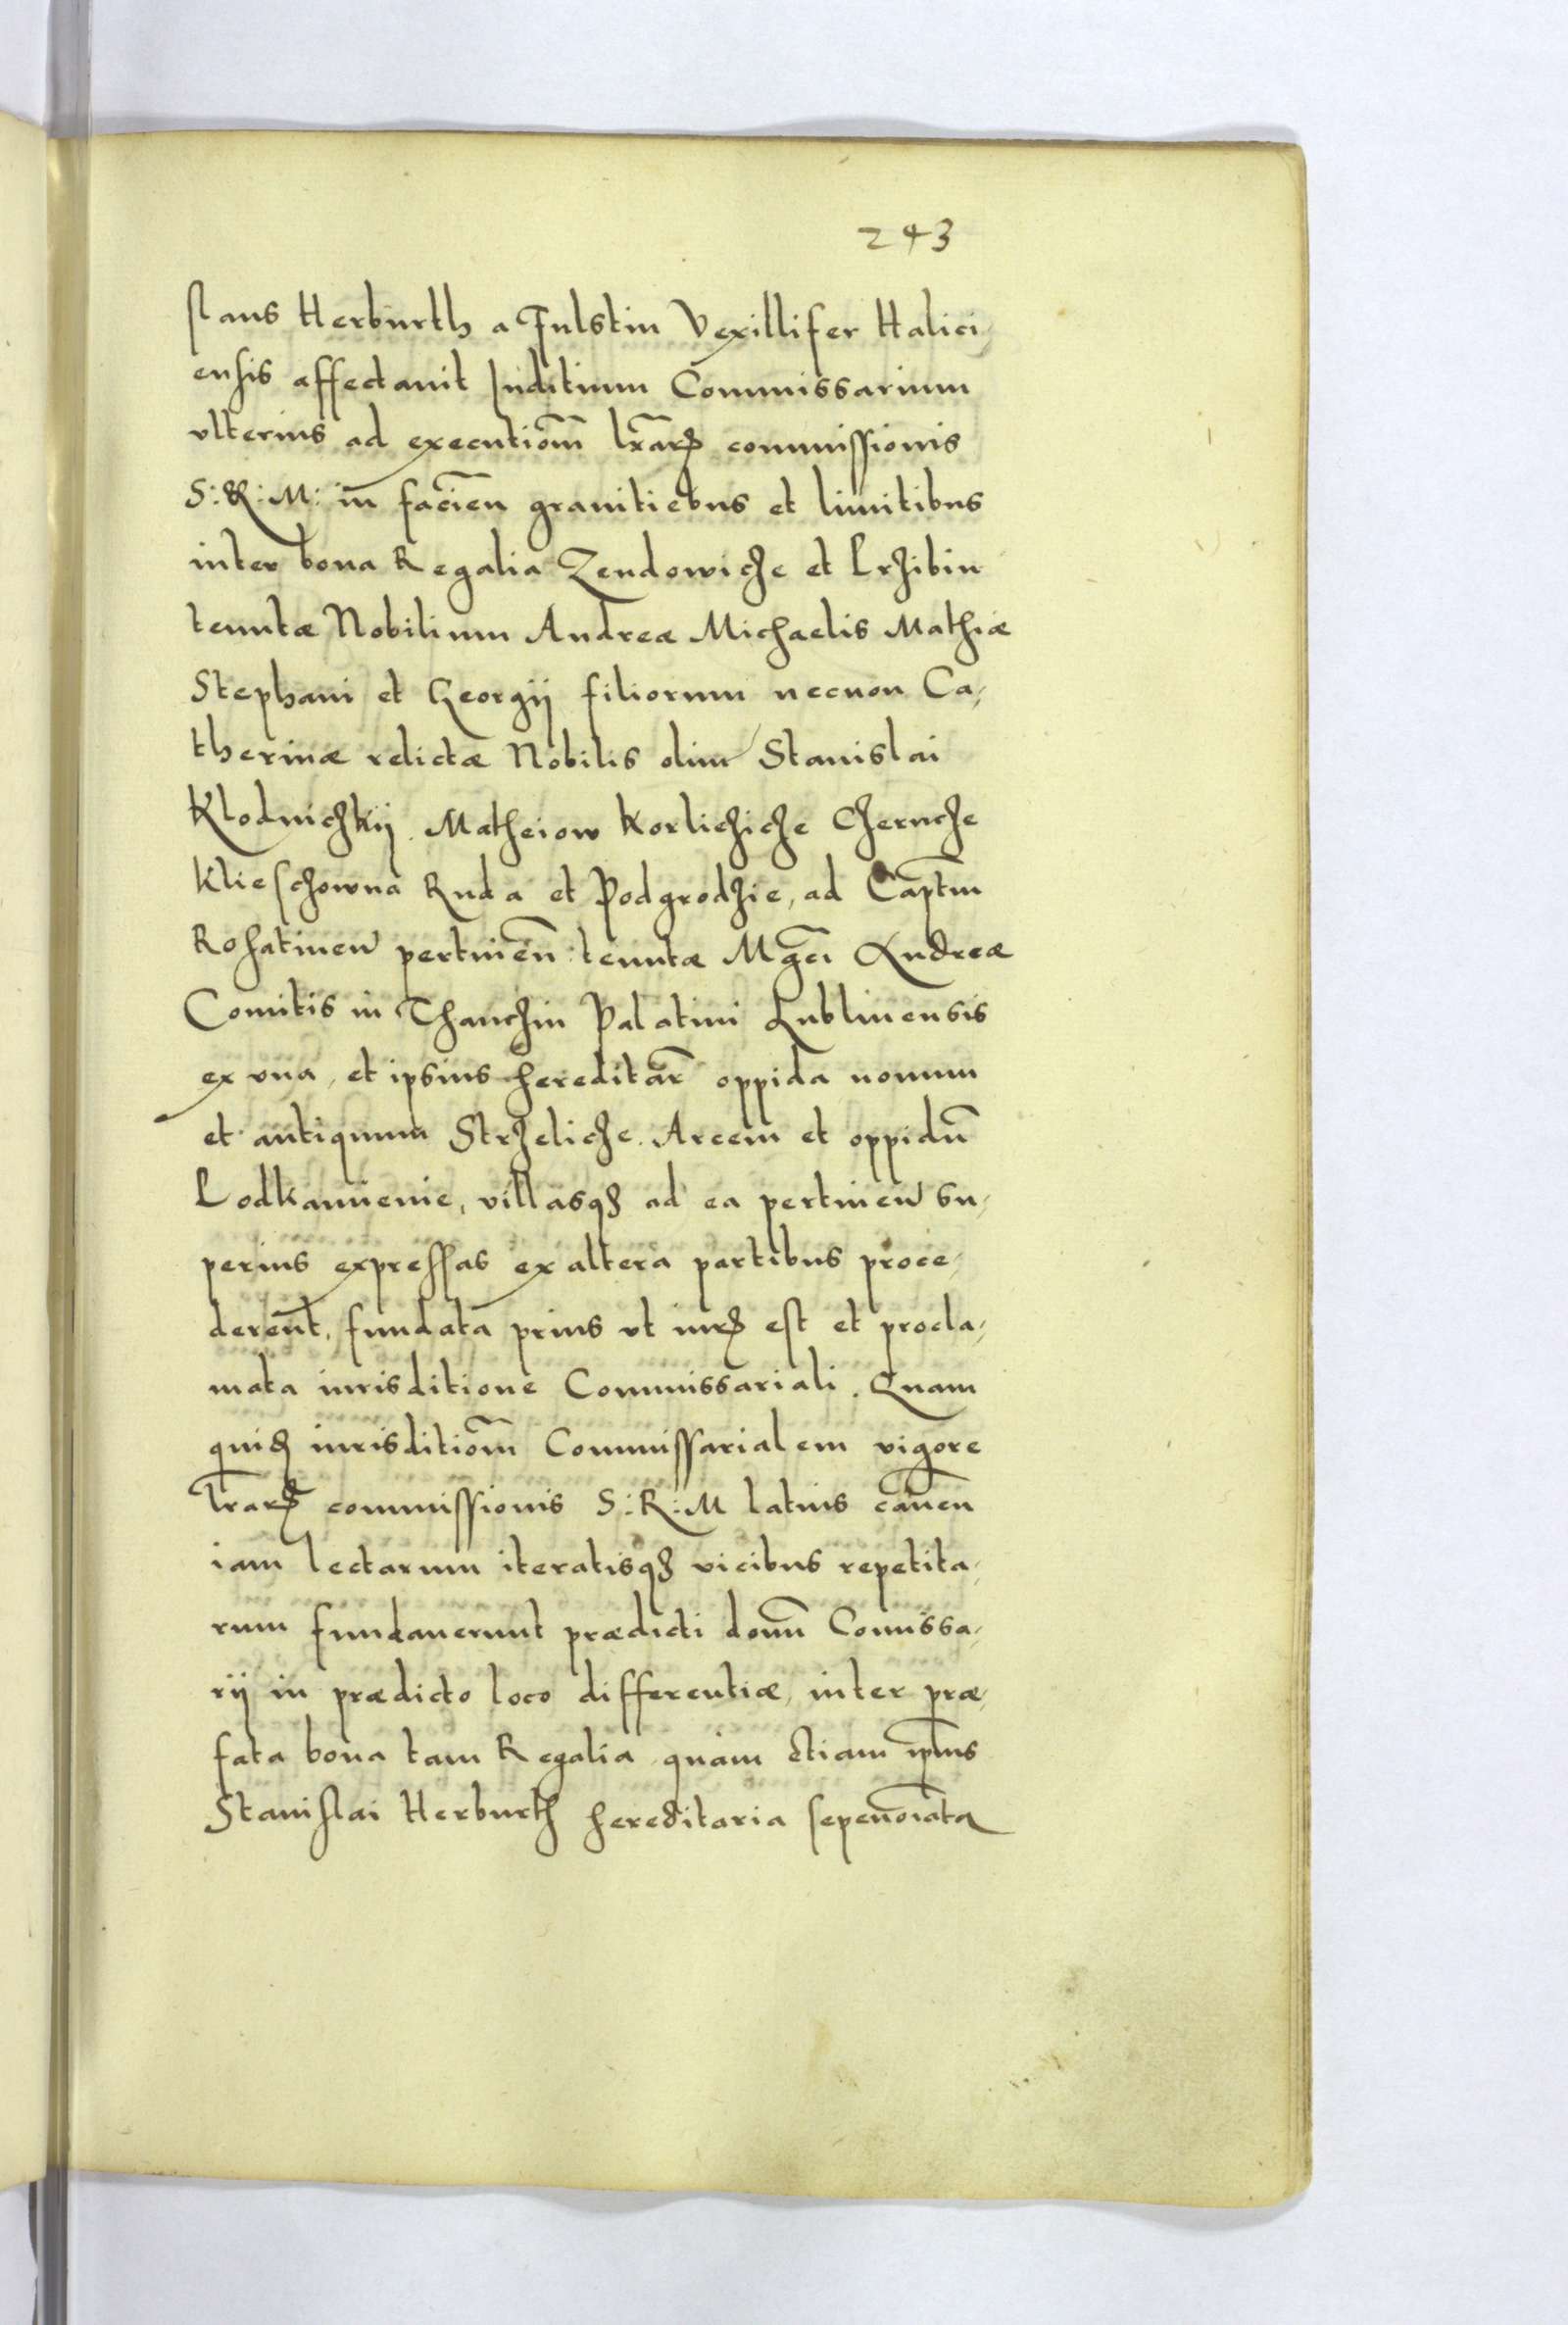 243
slaus Herburth a Fulstin Vexillifer Halici-
ensis affectauit Iuditium Commissarium
vlterius ad executiom̃ lr̃arꝝ commissionis
S: R: M: in faciẽn granitiebus et limitibus
inter bona Regalia Zendowicze et Lrzibin
tenutæ Nobilium Andreæ Michaelis Mathiæ
Stephani et Georgij filiorum necnon Ca-
therinæ relictæ Nobilis olim Stanislai
Klodniczkij. Matheiow Korlicziche Chernche
Klieschowna Ruda et Podgrodzie, ad Capt̃m
Rohatinen̄ pertinen̄: tenutæ Mgc̃i Andreæ
Comitis in Thanczin Palatini Lublinensis
ex vna, et ipsius hereditar̃ oppida nouum
et antiquum Strzelicze. Arcem et oppidū
Lodkamienie, villasqꝫ ad ea pertinen̄ su-
perius expressas ex altera partibus proce-
derent, fundata prius vt iurꝫ est et procla-
mata iurisditione Commissariali. Quam
quidꝫ iurisditiom̃ Commissarialem vigore
lr̃arꝝ commissionis S: R: M latius canẽn
iam lectarum iteratisqꝫ vicibus repetita-
rum fundauerunt prædicti domn̄ Comissa-
rij in prædicto loco differentiæ, inter præ-
fata bona tam Regalia quàm etiam ip̃ius
Stanislai Herburth hereditaria sepenoĩata